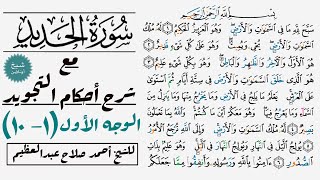 سُورَةُ الْحَدِيدِ
مع
شرح أحكام التجويد
الوجه الأول (١-١٠)
للشيخ: أحمد صلاح عبدالعظيم
بِسْمِ ٱللَّهِ ٱلرَّحْمَٰنِ ٱلرَّحِيمِ
سَبَّحَ لِلَّهِ مَا فِى ٱلسَّمَٰوَٰتِ وَٱلْأَرْضِ وَهُوَ ٱلْعَزِيزُ ٱلْحَكِيمُ ١ لَهُۥ مُلْكُ
ٱلسَّمَٰوَٰتِ وَٱلْأَرْضِ يُحْىِۦ وَيُمِيتُ وَهُوَ عَلَىٰ كُلِّ شَىْءٍ قَدِيرٌ ٢
هُوَ ٱلْأَوَّلُ وَٱلْءَاخِرُ وَٱلظَّٰهِرُ وَٱلْبَاطِنُ وَهُوَ بِكُلِّ شَىْءٍ عَلِيمٌ ٣
هُوَ ٱلَّذِى خَلَقَ ٱلسَّمَٰوَٰتِ وَٱلْأَرْضَ فِى سِتَّةِ أَيَّامٍ ثُمَّ ٱسْتَوَىٰ
عَلَى ٱلْعَرْشِ يَعْلَمُ مَا يَلِجُ فِى ٱلْأَرْضِ وَمَا يَخْرُجُ مِنْهَا وَمَا يَنزِلُ
مِنَ ٱلسَّمَآءِ وَمَا يَعْرُجُ فِيهَا وَهُوَ مَعَكُمْ أَيْنَ مَا كُنتُمْ وَٱللَّهُ بِمَا تَعْمَلُونَ
بَصِيرٌ ٤ لَّهُۥ مُلْكُ ٱلسَّمَٰوَٰتِ وَٱلْأَرْضِ وَإِلَى ٱللَّهِ تُرْجَعُ ٱلْأُمُورُ
٥ يُولِجُ ٱلَّيْلَ فِى ٱلنَّهَارِ وَيُولِجُ ٱلنَّهَارَ فِى ٱلَّيْلِ وَهُوَ عَلِيمٌۢ بِذَاتِ
ٱلصُّدُورِ ٦ ءَامِنُوا۟ بِٱللَّهِ وَرَسُولِهِۦ وَأَنفِقُوا۟ مِمَّا جَعَلَكُم